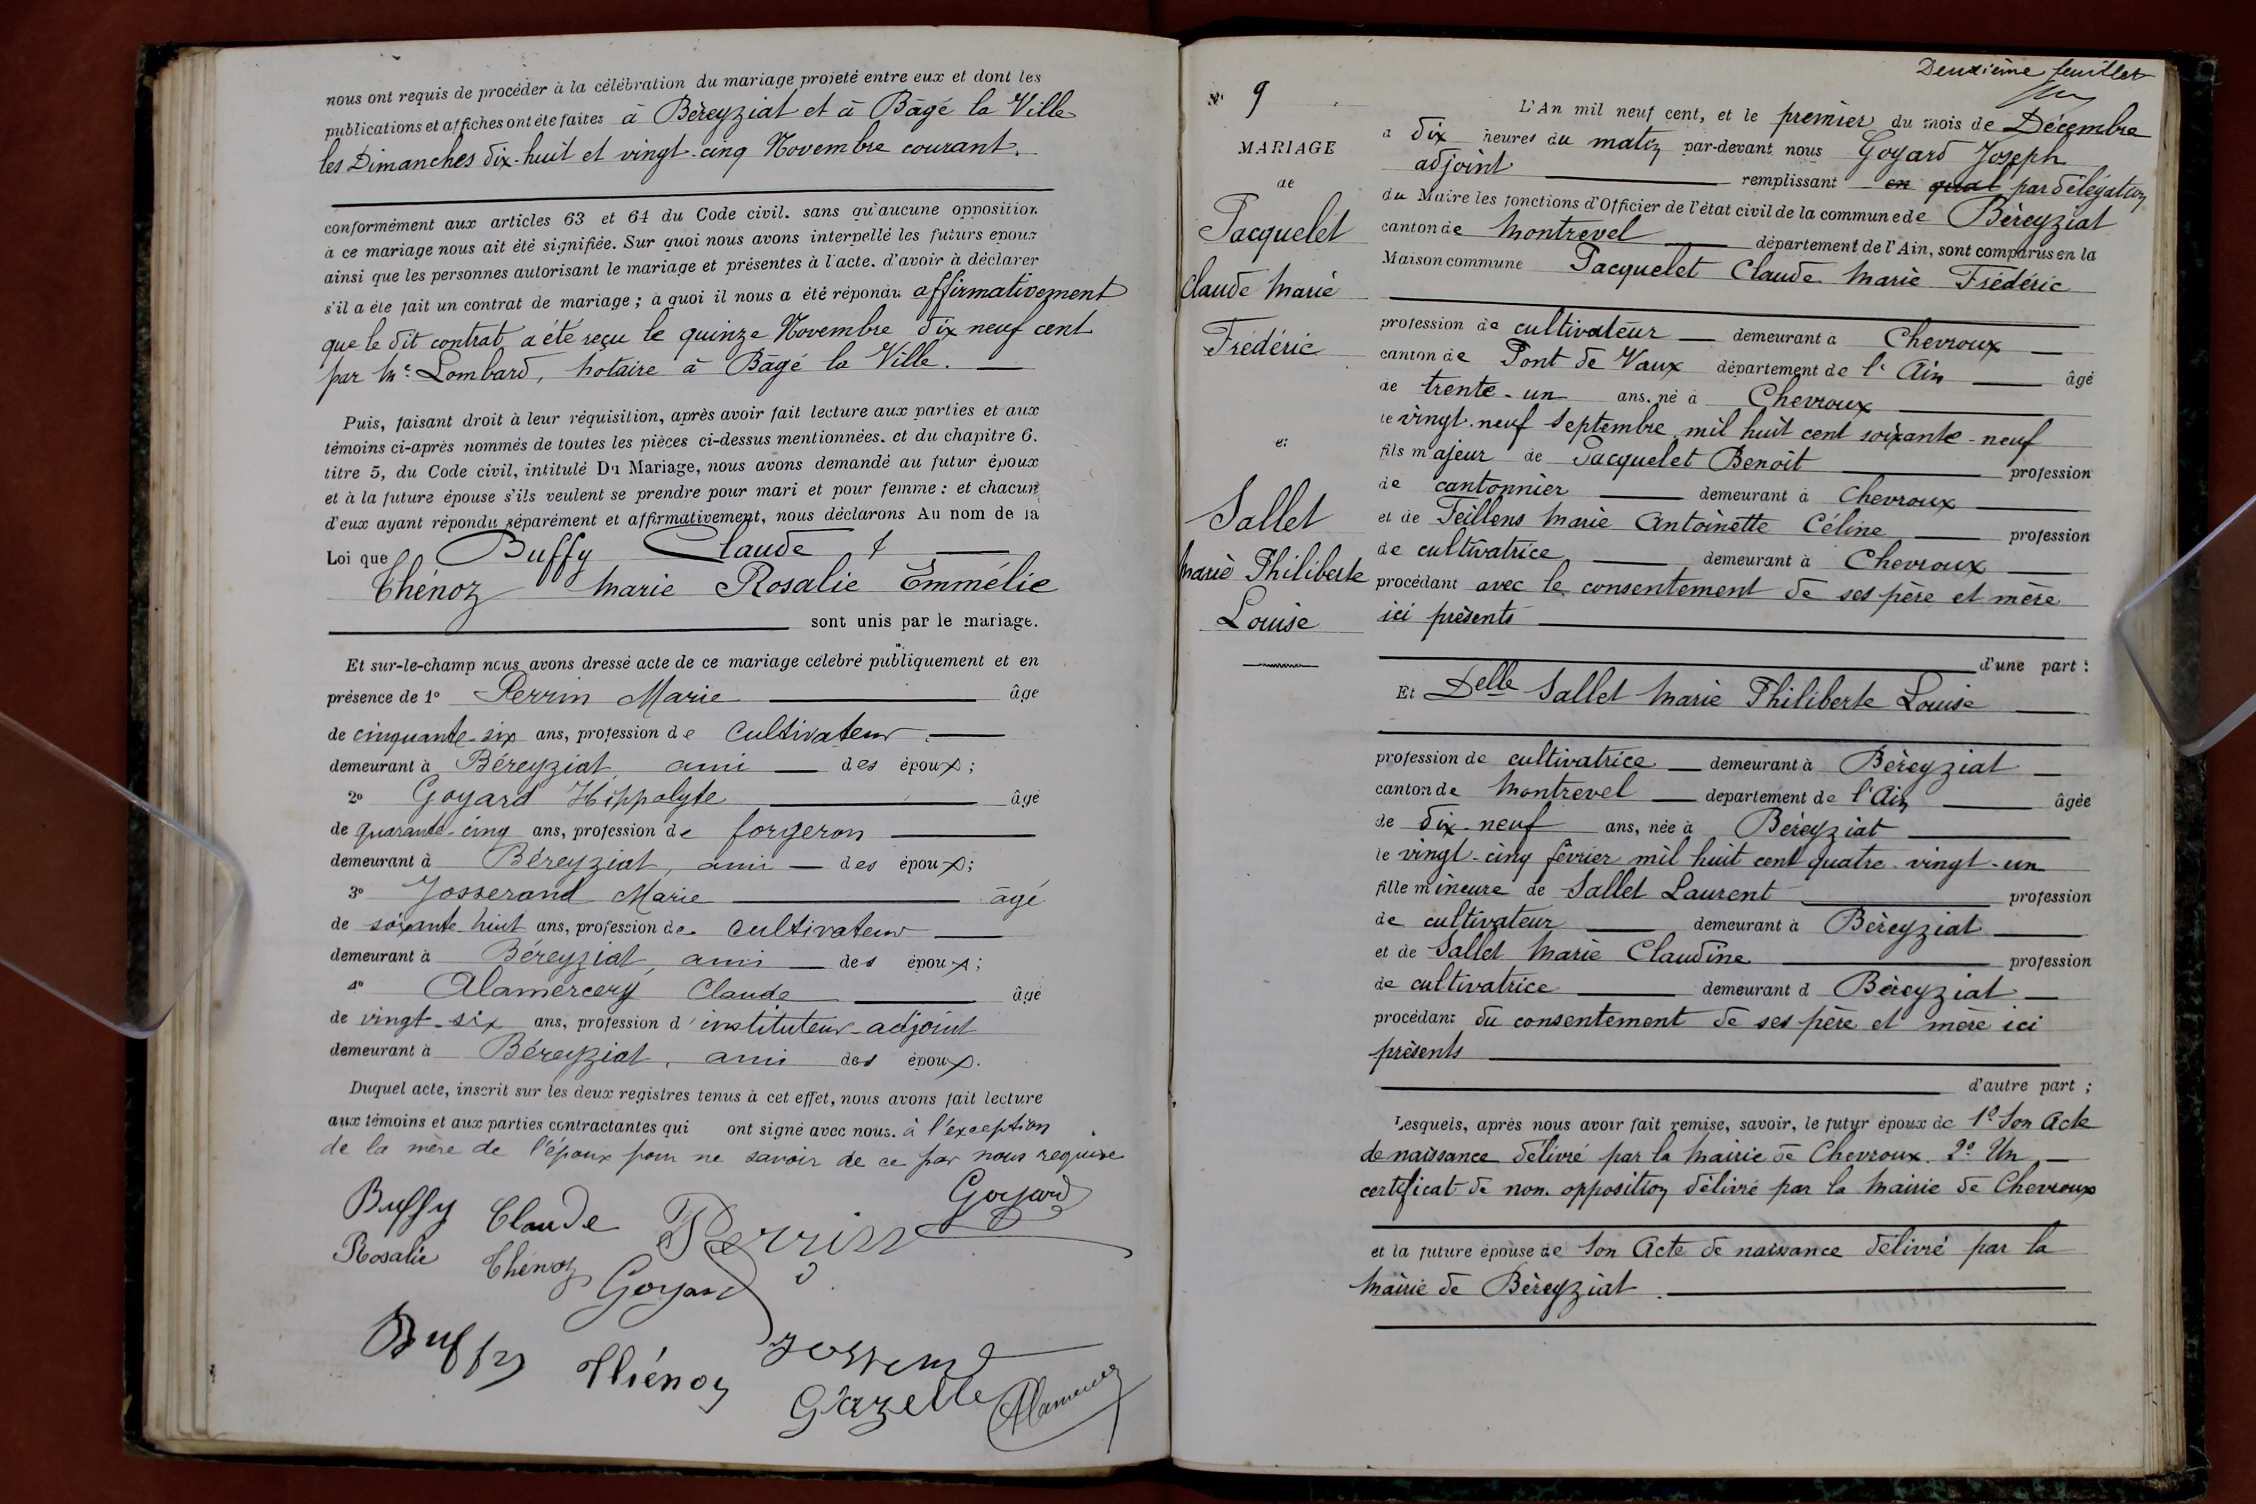 nous ont requis de procéder à la célébration du mariage projeté entre eux et dont les
publications et affiches ont été faites à Béreyziat et à Bâgé la Ville
les Dimanches dix-huit et vingt-cinq Novembre courant.
conformément aux articles 63 et 64 du Code civil. sans qu'aucune opposition
à ce mariage nous ait été signifiée. Sur quoi nous avons interpellé les futurs époux
ainsi que les personnes autorisant le mariage et présentes à l'acte. d'avoir à déclarer
s'il a été fait un contrat de mariage ; à quoi il nous a été répondu affirmativement
que le dit contrat a été reçu le quinze Novembre dix neuf cent
par Me Lombard, notaire à Bâgé la Ville.
Puis, faisant droit à leur réquisition, après avoir fait lecture aux parties et aux
témoins ci-après nommés de toutes les pièces ci-dessus mentionnées. et du chapitre 6.
titre 5, du Code civil, intitulé Du Mariage, nous avons demandé au futur époux
et à la future épouse s'ils veulent se prendre pour mari et pour femme : et chacun
d'eux ayant répondu séparément et affirmativement, nous déclarons Au nom de la
Loi que Buffy Claude &
Thénoz Marie Rosalie Emmélie
sont unis par le mariage.
Et sur-le-champ nous avons dressé acte de ce mariage célébré publiquement et en
présence de 1° Perrin Marie âgé
de cinquante-six ans, profession de cultivateur
demeurant à Béreyziat, ami des époux ;
2° Goyard Hippolyte âgé
de quarante-cinq ans, profession de forgeron
demeurant à Béreyziat, ami des époux ;
3° Josserand Marie âgé
de soixante huit ans, profession de cultivateur
demeurant à Béreyziat, ami des époux ;
4° Alamercery Claude âgé
de vingt-six ans, profession d'instituteur-adjoint
demeurant à Béreyziat, ami des époux.
Duquel acte, inscrit sur les deux registres tenus à cet effet, nous avons fait lecture
aux témoins et aux parties contractantes qui ont signé avec nous. à l'exception
de la mère de l'époux pour ne savoir de ce par nous requise
Buffy Claude Perrin Goyard
Rosalie Thénoz Goyard
Buffy Thénoz Josserand
Gazelle Alamercery
Deuxième feuillet
N° 9
MARIAGE
de
Pacquelet
Claude Marie
Frédéric
et
Sallet
Marie Philiberte
Louise
L'An mil neuf cent, et le premier du mois de Décembre
à dix heures du matin par-devant nous Goyard Joseph
adjoint remplissant en qual par délégation
du Maire les fonctions d'Officier de l'état civil de la commune de Béreyziat
canton de Montrevel département de l'Ain, sont comparus en la
Maison commune Pacquelet Claude Marie Frédéric
profession de cultivateur demeurant à Chevroux
canton de Pont de Vaux département de l'Ain âgé
de trente-un ans. né à Chevroux
le vingt-neuf Septembre mil huit cent soixante-neuf
fils majeur de Pacquelet Benoît profession
de cantonnier demeurant à Chevroux
et de Feillens Marie Antoinette Céline profession
de cultivatrice demeurant à Chevroux
procédant avec le consentement de ses père et mère
ici présents
d'une part :
Et Delle Sallet Marie Philiberte Louise
profession de cultivatrice demeurant à Béreyziat
canton de Montrevel département de l'Ain âgée
de dix-neuf ans, née à Béreyziat
le vingt-cinq février mil huit cent quatre-vingt-un
fille mineure de Sallet Laurent profession
de cultivateur demeurant à Béreyziat
et de Sallet Marie Claudine profession
de cultivatrice demeurant à Béreyziat
procédant du consentement de ses père et mère ici
présents
d'autre part ;
Lesquels, après nous avoir fait remise, savoir, le futur époux de 1° Son Acte
de naissance délivré par la Mairie de Chevroux. 2° Un
certificat de non-opposition délivré par la Mairie de Chevroux
et la future épouse de Son Acte de naissance délivré par la
Mairie de Béreyziat.